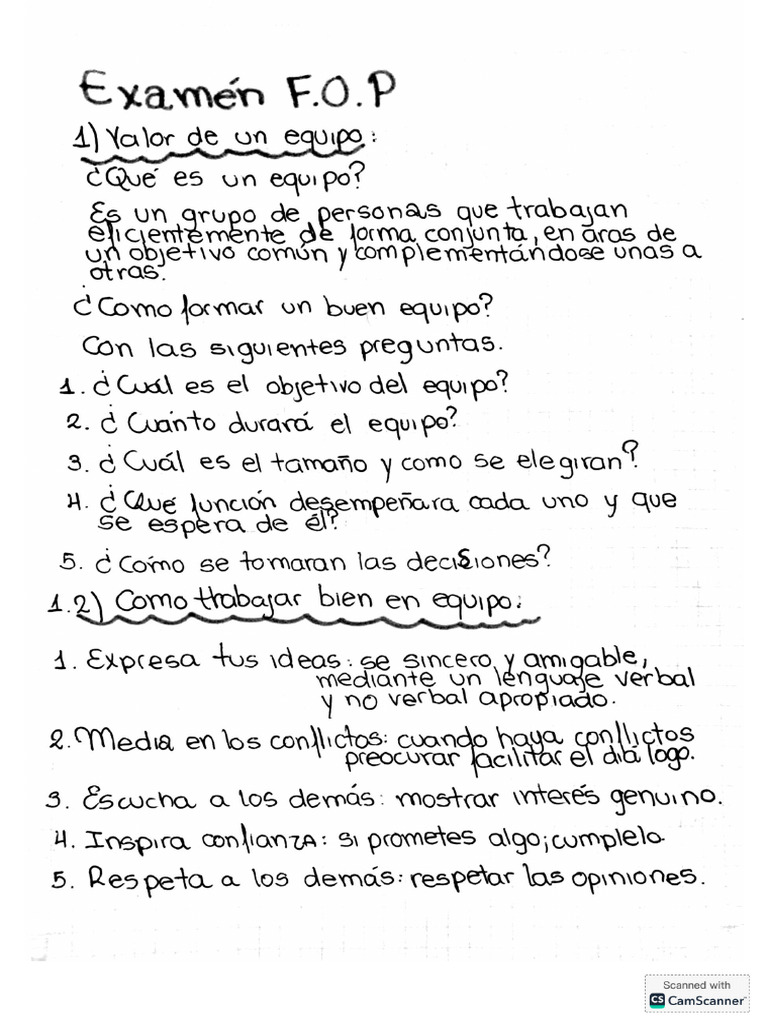 Examén F.O.P
1) Valor de un equipo:
¿Qué es un equipo?
Es un grupo de personas que trabajan
eficientemente de forma conjunta, en aras de
un objetivo común y complementándose unas a
otras.
¿Como formar un buen equipo?
Con las siguientes preguntas.
1. ¿Cuál es el objetivo del equipo?
2. ¿Cuánto durará el equipo?
3. ¿Cuál es el tamaño y como se elegiran?
4. ¿Qué función desempeñara cada uno y que
se espera de él?
5. ¿Cómo se tomaran las decisiones?
1.2) Como trabajar bien en equipo:
1. Expresa tus ideas: se sincero y amigable,
mediante un lenguaje verbal
y no verbal apropiado.
2. Media en los conflictos: cuando haya conflictos
preocurar facilitar el diálogo.
3. Escucha a los demás: mostrar interés genuino.
4. Inspira confianza: si prometes algo; cumplelo.
5. Respeta a los demás: respetar las opiniones.
Scanned with
CS CamScanner